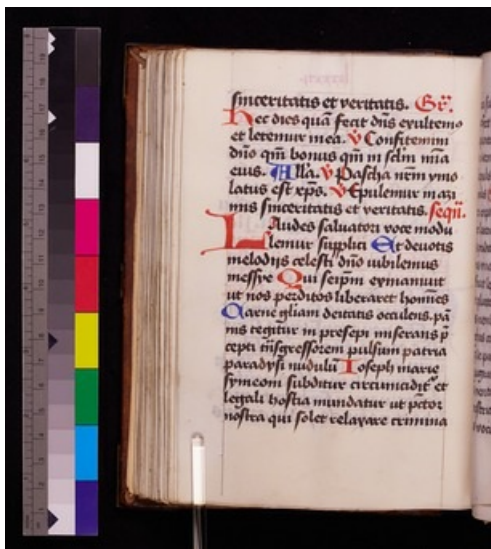 sinceritatis et veritatis. Gr̄.
Hec dies quā fecit dn̄s exultemꝰ
et letemur in ea. ℣ Confitemini
dn̄o qm̄ bonus qm̄ in sclm̄ mīa
eius. Alla. ℣ Pascha nr̄m ymo
latus est xp̄s. ℣ Epulemur in azi
mis sinceritatis et veritatis. seqn̄.
Laudes salvatori voce modu
lemur supplici Et devotis
melodijs celesti dn̄o iubilemus
messye Qui seip̄m exinanivit
ut nos perditos liberaret homīes
Carne gl̄iam deitatis occulens. pā
nis tegitur in presepi miserans p̄
cepti tn̄sgressorem pulsum patria
paradysi nudulū Ioseph marie
symeoni subditur circumcidit᷑ et
legali hostia mundatur ut pctor
nostra qui solet relaxare crimina